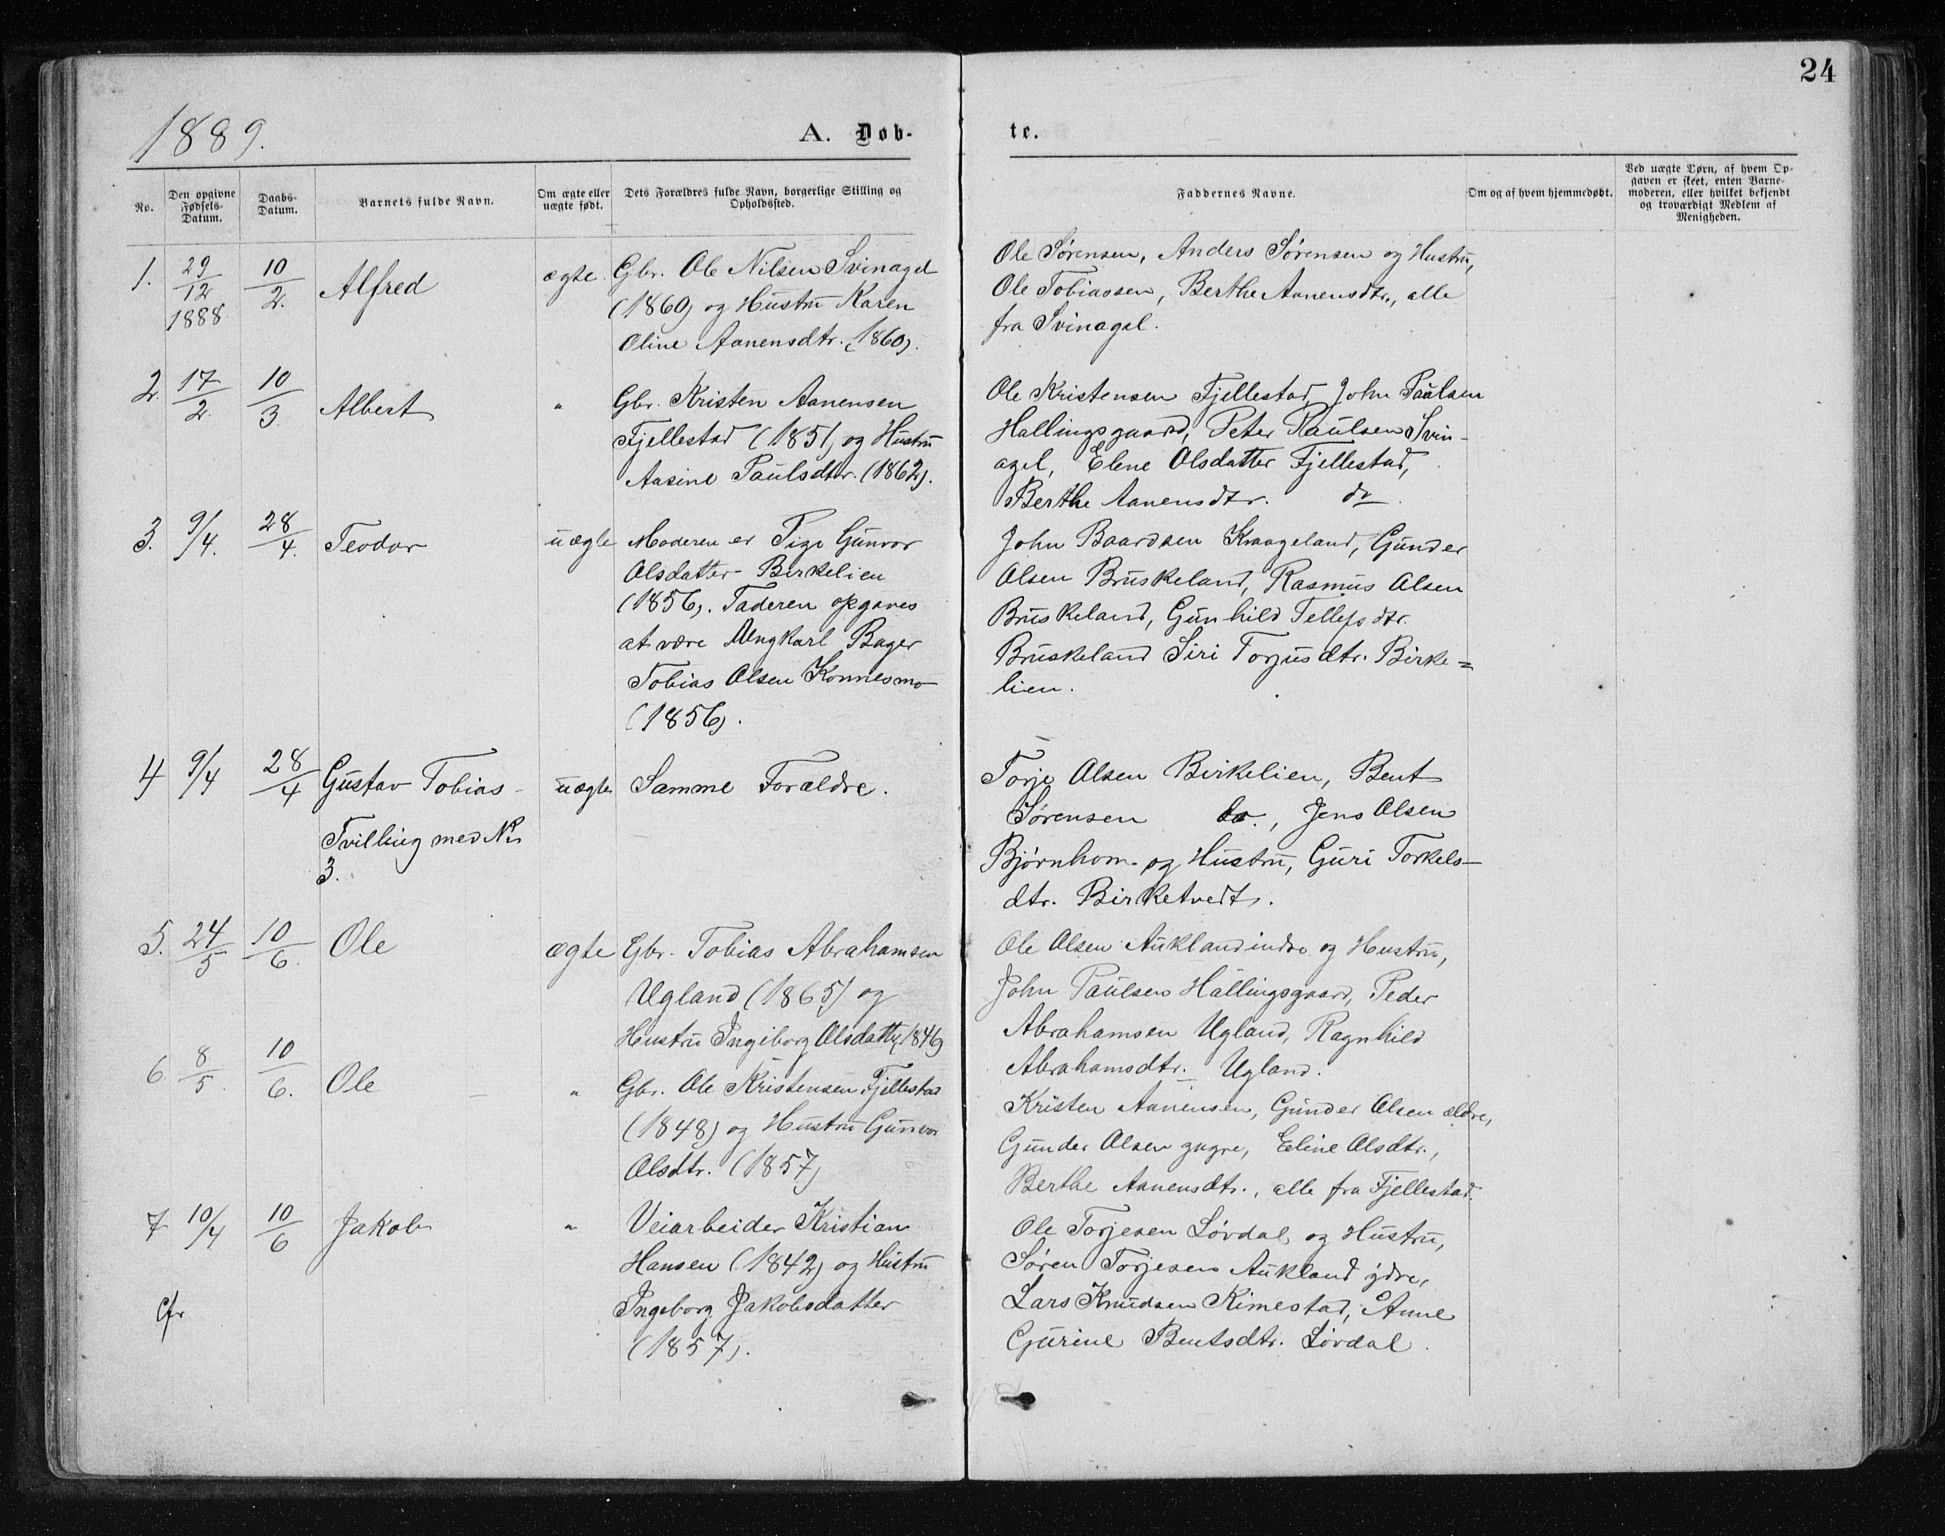 24
1889.
A. Døb-
te.
No.
Den opgivne Fødsels-Datum.
Daabs-Datum.
Barnets fulde Navn.
Om ægte eller uægte født.
Dets Forældres fulde Navn, borgerlige Stilling og Opholdssted.
Faddernes Navne.
Om og af hvem hjemmedøbt.
Ved uægte Børn, af hvem Opgaven er skeet, enten Barnemoderen, eller hvilket bekjendt og troværdigt Medlem af Menigheden.
1. 29/12 1888 10/2. Alfred ægte. Gbr. Ole Nilsen Svinagel
(1860) og Hustru Karen
Oline Aanensdtr. (1860).
Ole Sørensen, Anders Sørensen og Hustru,
Ole Tobiassen, Berthe Aanensdtr., alle
fra Svinagel.
2. 17/2. 10/3. Albert " Gbr. Kristen Aanensen
Fjellestad (1851) og Hustru
Aasine Paulsdtr. (1862).
Ole Kristensen Fjellestad, John Paulsen
Hallingsgaard, Peter Paulsen Svin-
agel, Elene Olsdatter Fjellestad,
Berthe Aanensdtr. do.
3. 9/4. 28/4. Teodor uægte Moderen er Pige Gunvor
Olsdatter Birkelien
(1856). Faderen opgaves
at være Ungkarl Bager
Tobias Olsen Konnesmo
(1856).
John Baardsen Kraageland, Gunder
Olsen Bruskeland, Rasmus Olsen
Bruskeland, Gunhild Tellefsdtr.
Bruskeland Siri Torjusdtr. Birke=
lien.
4 9/4 28/4 Gustav Tobias - uægte Samme Forældre.
Tvilling med No
3.
Torje Olsen Birkelien, Bent
Sørensen do., Jens Olsen
Bjørnhom og Hustru, Guri Torkels-
dtr. Birketvedt.
5. 24/5 10/6. Ole ægte Gbr. Tobias Abrahamsen
Ugland (1865) og
Hustru Ingeborg Olsdatter (1846)
Ole Olsen Aukland indre og Hustru,
John Paulsen Hallingsgaard, Peder
Abrahamsen Ugland, Ragnhild
Abrahamsdtr. Ugland.
6 8/5. 10/6. Ole " Gbr. Ole Kristensen Fjellestad
(1848) og Hustru Gunvor
Olsdtr. (1857)
Kristen Aanensen, Gunder Olsen ældre,
Gunder Olsen yngre, Eline Olsdtr.,
Berthe Aanensdtr., alle fra Fjellestad.
7 10/4 10/6 Jakob " Veiarbeider Kristian
Hansen (1842) og Hustru
Ingeborg Jakobsdatter
(1857).
cfr
Ole Torjesen Løvdal og Hustru,
Søren Torjesen Aukland ydre,
Lars Knudsen Kimestad, Anne
Gurine Bentsdtr. Løvdal.